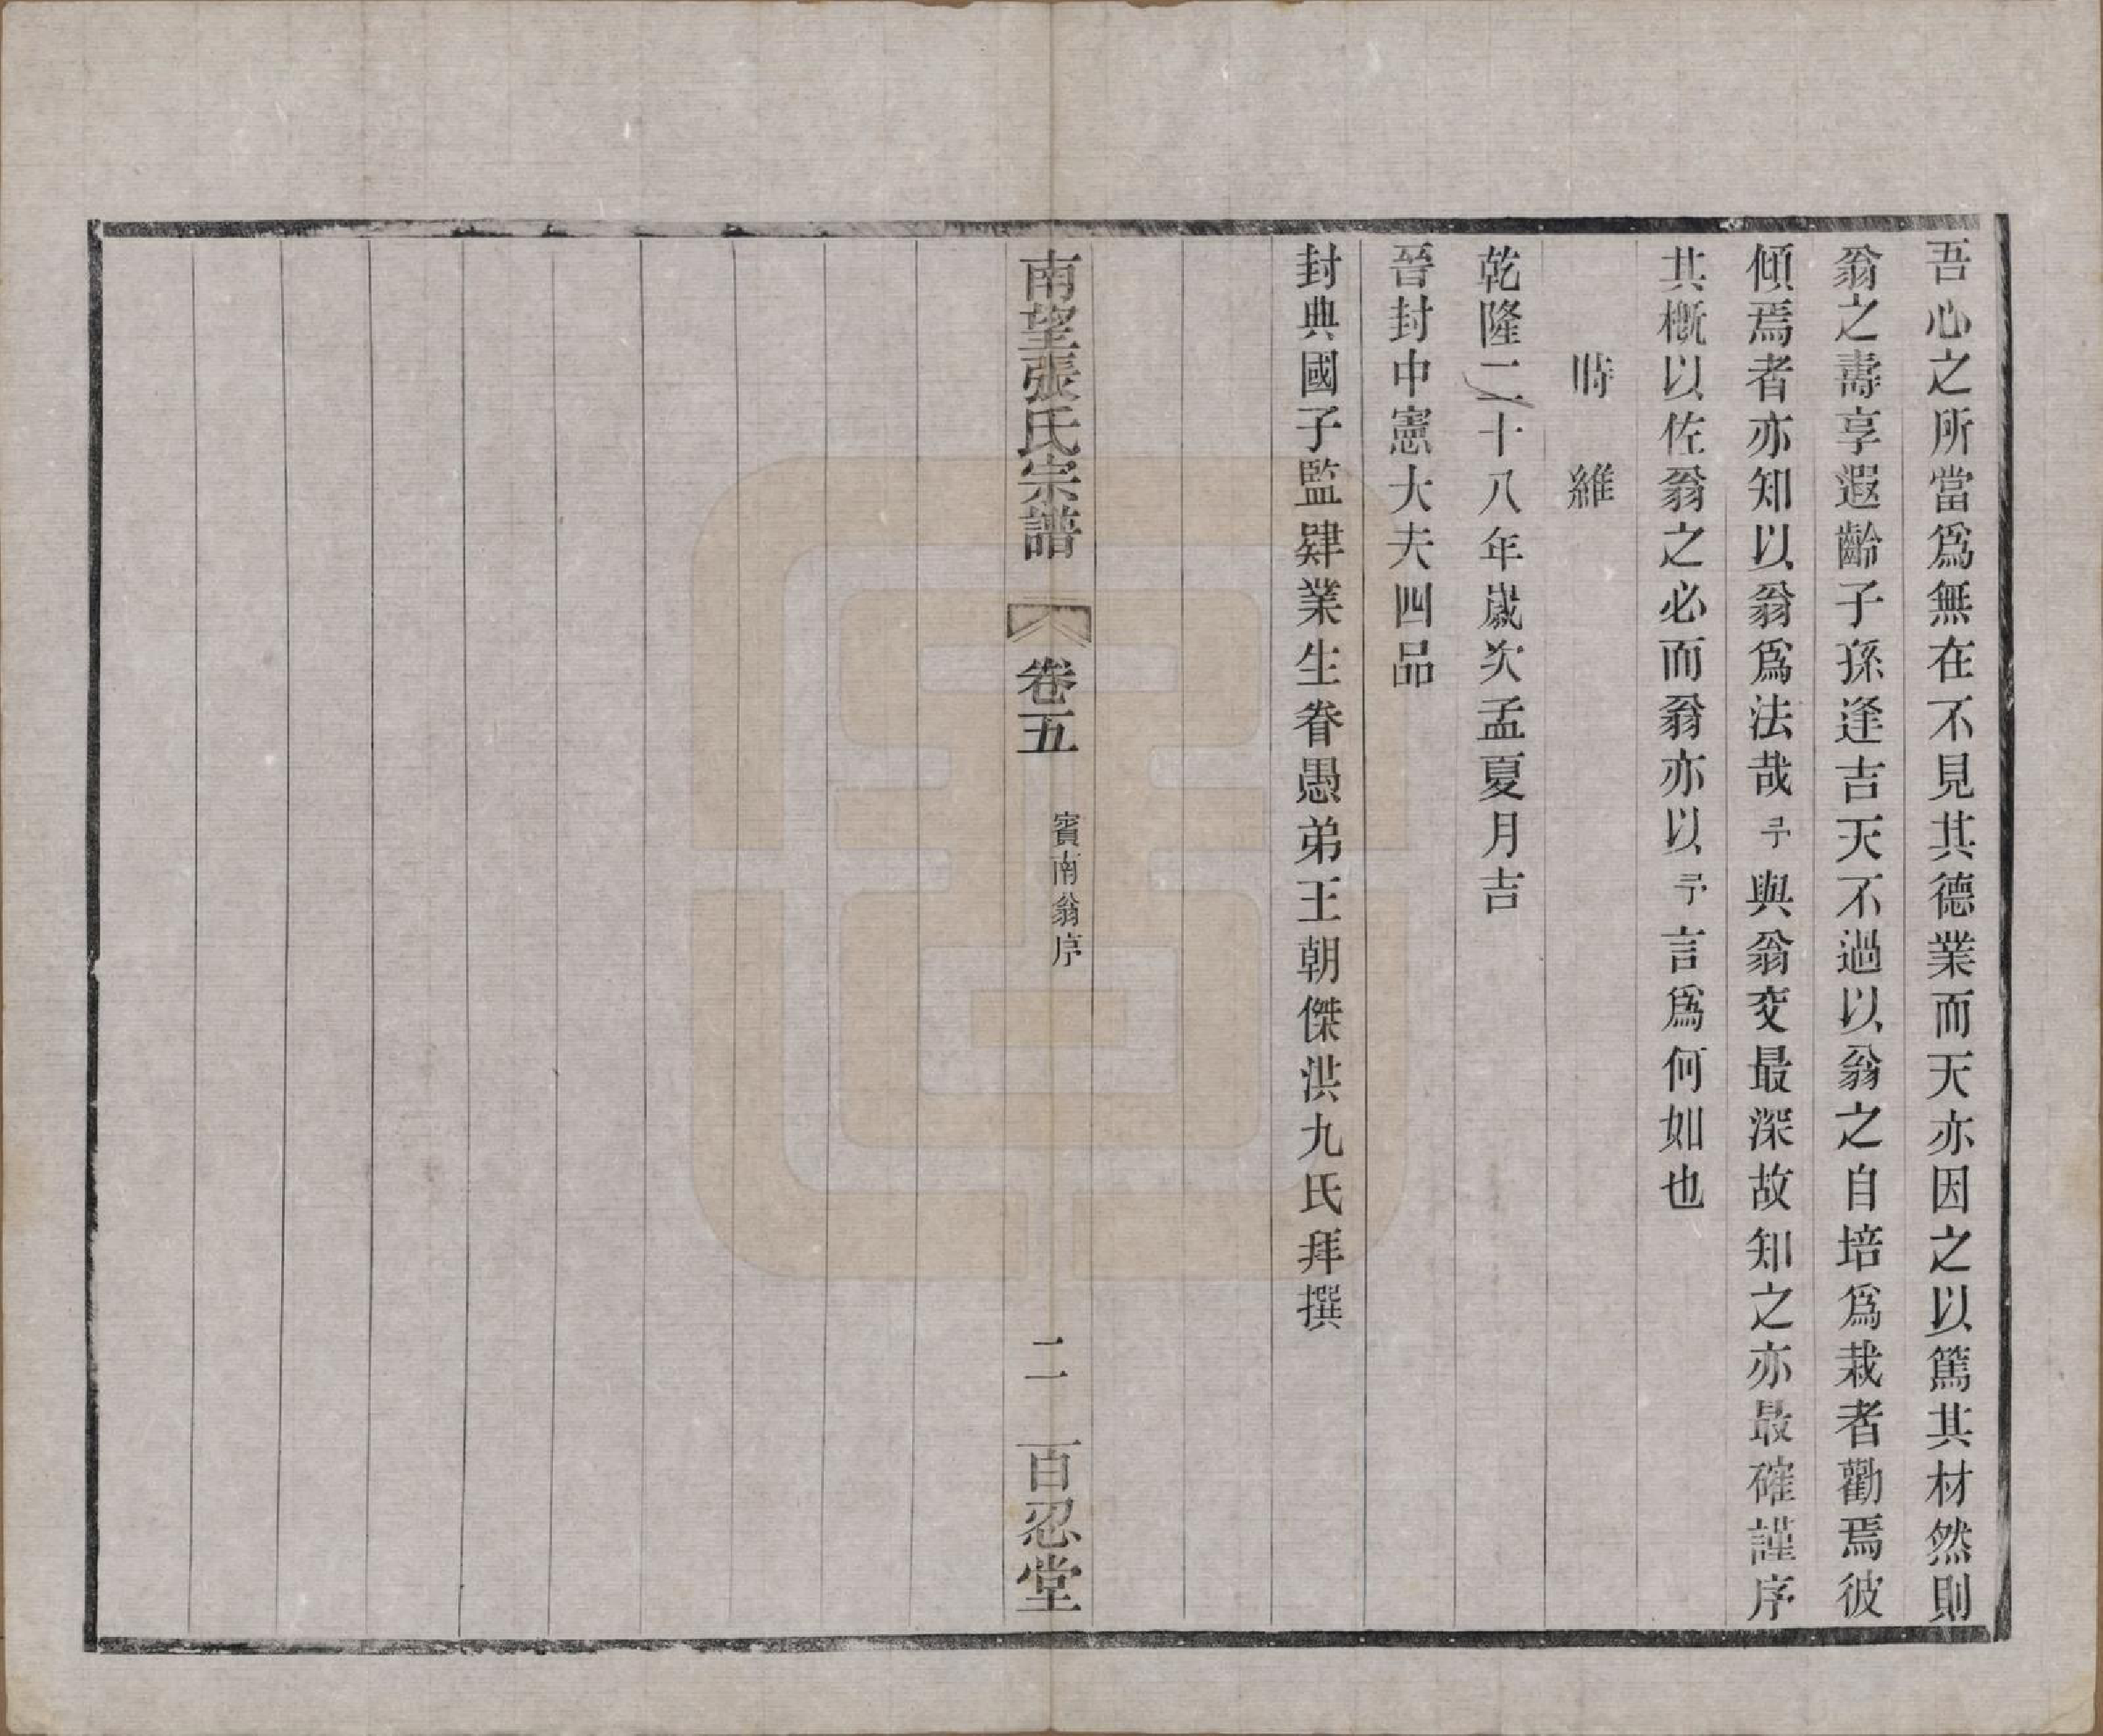 吾心之所當爲無在不見其德業而天亦因之以篤其材然則
翁之壽享遐齡子孫逢吉天不過以翁之自培爲栽者勸焉彼
傾焉者亦知以翁爲法哉予與翁交最深故知之亦最確謹序
其槪以佐翁之必而翁亦以予言爲何如也
時維
乾隆二十八年歲次孟夏月吉
晉封中憲大夫四品
封典國子監肄業生眷愚弟王朝傑洪九氏拜撰
南望張氏宗譜 卷五 賓南翁序 二 百忍堂